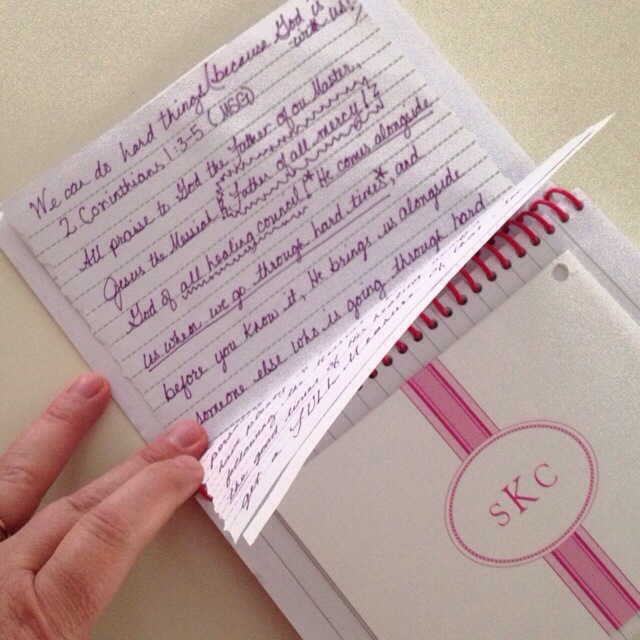 We can do hard things (because God is with us!)
2 Corinthians 1:3-5 (MSG)
All praise to God the Father of our Master,
Jesus the Messiah! Father of all mercy!
God of all healing counsel! He comes alongside
us when we go through hard times, and
before you know it, He brings us alongside
someone else who is going through hard
good times
get a FULL
SKC